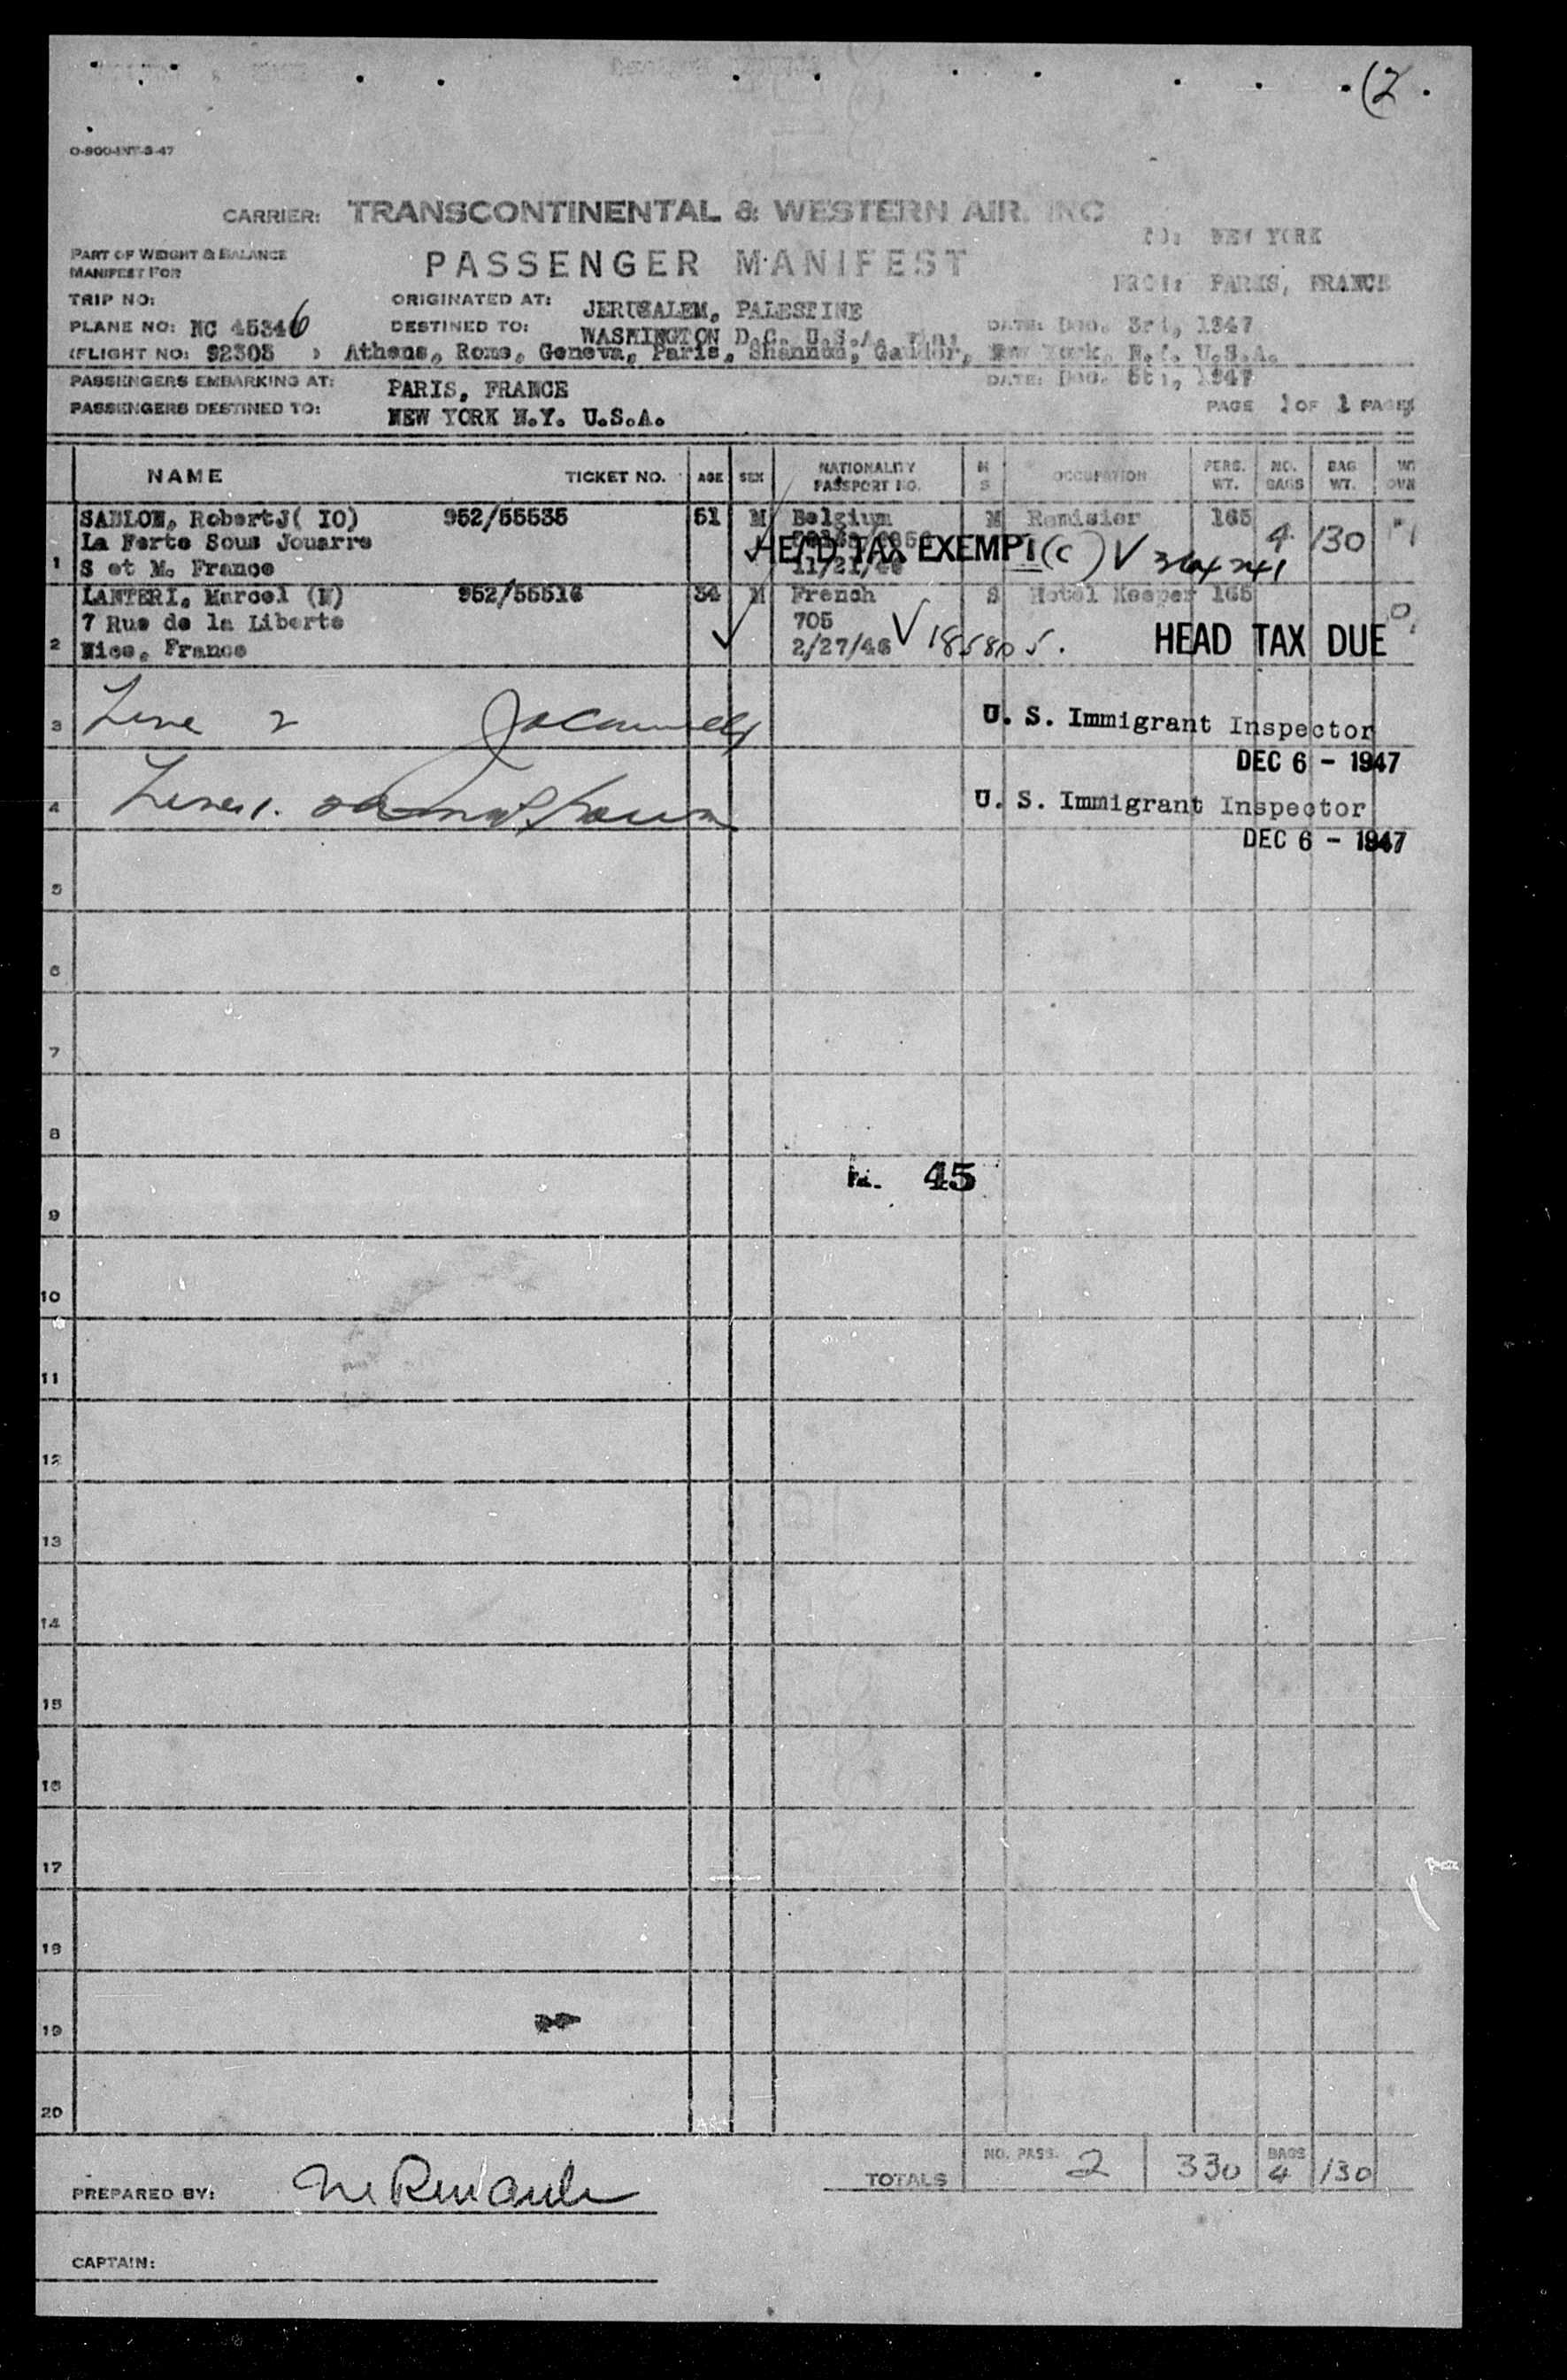 (2
O-800-INT-3-47
CARRIER: TRANSCONTINENTAL & WESTERN AIR. INC
TO: NEW YORK
PART OF WEIGHT & BALANCE
MANIFEST FOR
PASSENGER MANIFEST
FROM: PARIS, FRANCE
TRIP NO:
ORIGINATED AT: JERUSALEM, PALESTINE
PLANE NO: NC 45346
DESTINED TO: WASHINGTON D.C. U.S.A.
DATE: Dec. 3rd, 1947
(FLIGHT NO: 92305 ) Athens, Rome, Geneva, Paris, Shannon, Gander, New York, N.Y. U.S.A.
PASSENGERS EMBARKING AT: PARIS, FRANCE
DATE: Dec. 5th, 1947
PASSENGERS DESTINED TO: NEW YORK N.Y. U.S.A.
PAGE 1 OF 1 PAGES
NAME TICKET NO. AGE SEX NATIONALITY PASSPORT NO. M S OCCUPATION PERS. WT. NO. BAGS BAG WT.
1 SABLON, Robert J( IO) 952/55535 51 M Belgium M Remisier 165 4 130
La Ferte Sous Jouarre
HEAD TAX EXEMPT (c)
S et M. France 11/21/46
2 LANTERI, Marcel (N) 952/55516 34 M French S Hotel Keeper 165
7 Rue de la Liberte 705
Nice, France 2/27/46 185805.
HEAD TAX DUE
3 Line 2
U. S. Immigrant Inspector
DEC 6 - 1947
4 Line 1.
U. S. Immigrant Inspector
DEC 6 - 1947
5
6
7
8
45
9
10
11
12
13
14
15
16
17
18
19
20
TOTALS NO. PASS. 2 330 BAGS 4 130
PREPARED BY:
CAPTAIN: